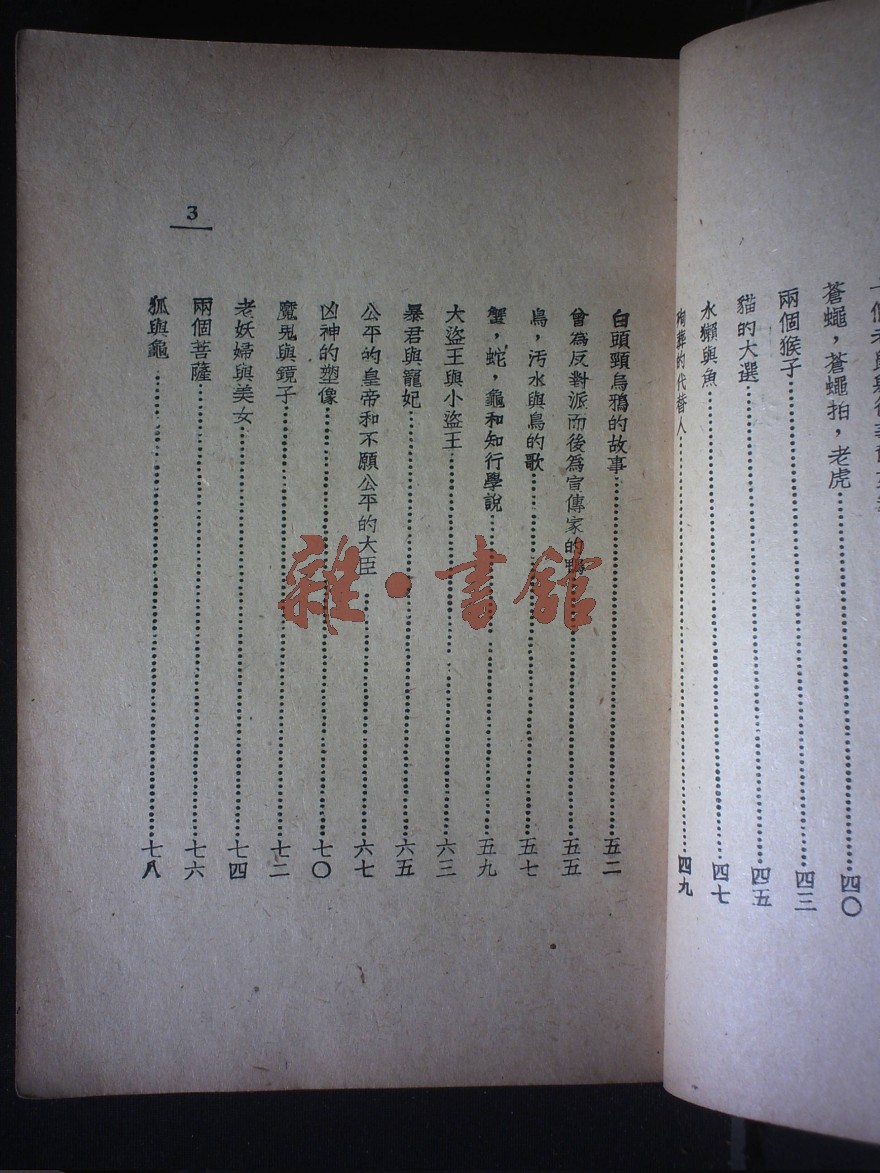 蒼蠅，蒼蠅拍，老虎……四〇
兩個猴子……四三
貓的大選……四五
水獺與魚……四七
殉葬的代替人……四九
3
白頭頸烏鴉的故事……五二
曾為反對派而後爲宣傳家的鴨……五五
鳥，汚水與鳥的歌……五七
蟹，蛇，龜和知行學說……五九
大盜王與小盜王……六三
暴君與寵妃……六五
公平的皇帝和不願公平的大臣……六七
凶神的塑像……七〇
魔鬼與鏡子……七二
老妖婦與美女……七四
兩個菩薩……七六
狐與龜……七八
雜·書館